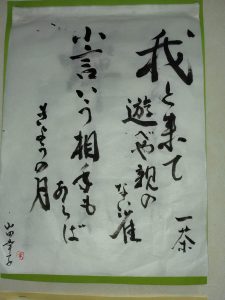 我と来て
遊べや親の
ない雀
一茶
小言いう相手も
あらば
きょうの月
山田幸子